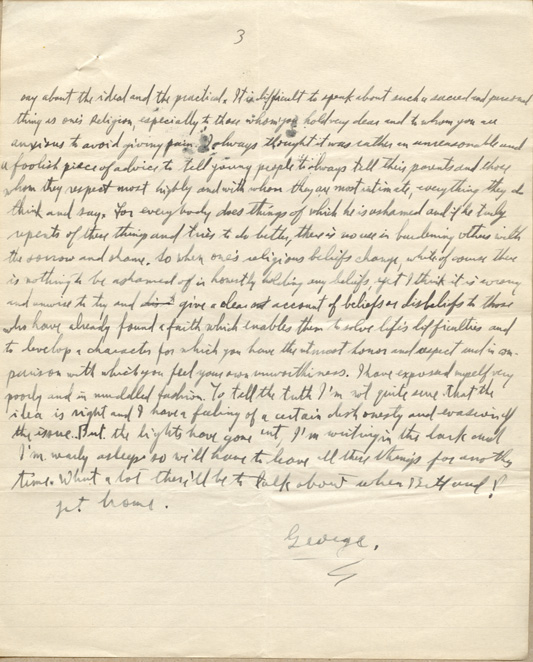 3
say about the ideal and the practical. It is difficult to speak about such a sacred and personal
thing as one's religion, especially to those whom you hold very dear and to whom you are
anxious to avoid giving pain. I always thought it was rather an unreasonable and
a foolish piece of advice to tell young people to always tell this parents and those
whom they respect most highly and with whom they are most intimate, everything they do
think and say. For everybody does things of which he is ashamed and if he truly
repents of these things and tries to do better, there is no use in burdening others with
the sorrow and shame. So when one's religious beliefs change, while of course there
is nothing to be ashamed of in honestly holding any beliefs, yet I think it is wrong
and unwise to try and give a clear cut account of beliefs or disbeliefs to those
who have already found a faith which enables them to solve life's difficulties and
to develop a character for which you have the utmost honor and respect and in com-
parison with which you feel your own unworthiness. I have expressed myself very
poorly and in muddled fashion. To tell the truth I'm not quite sure that the
idea is right and I have a feeling of a certain dishonesty and evasion of
the issue. But the lights have gone out, I'm writing in the dark and
I'm nearly asleep so will have to leave all these things for another
time. What a lot there'll be to talk about when and I
get home.
George.